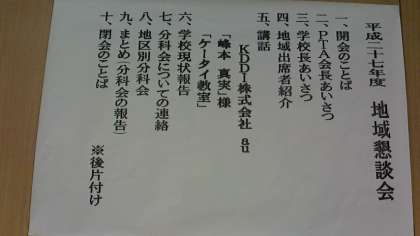 平成二十七年度 地域懇談会
一、開会のことば
二、PTA会長あいさつ
三、学校長あいさつ
四、地域出席者紹介
五、講話
KDDI株式会社 au
「峰本 真実」様
「ケータイ教室」
六、学校現状報告
七、分科会についての連絡
八、地区別分科会
九、まとめ(分科会の報告)
十、閉会のことば
※後片付け